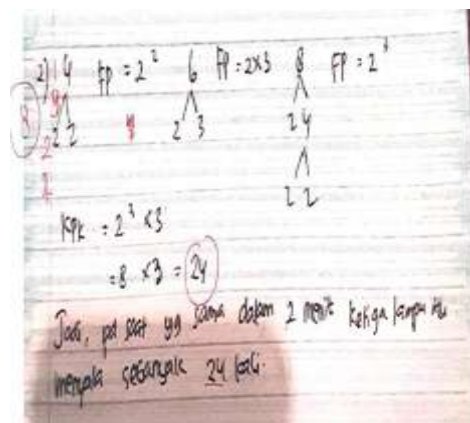 2) 4 FP = 2² 6 FP = 2x3 8 FP = 2³
2 2 2 3 2 4
2 2
KPK = 2³ x3
= 8 x3 = 24
Jadi, pd saat yg sama dalam 2 menit ketiga lampu itu
menyala sebanyak 24 kali.